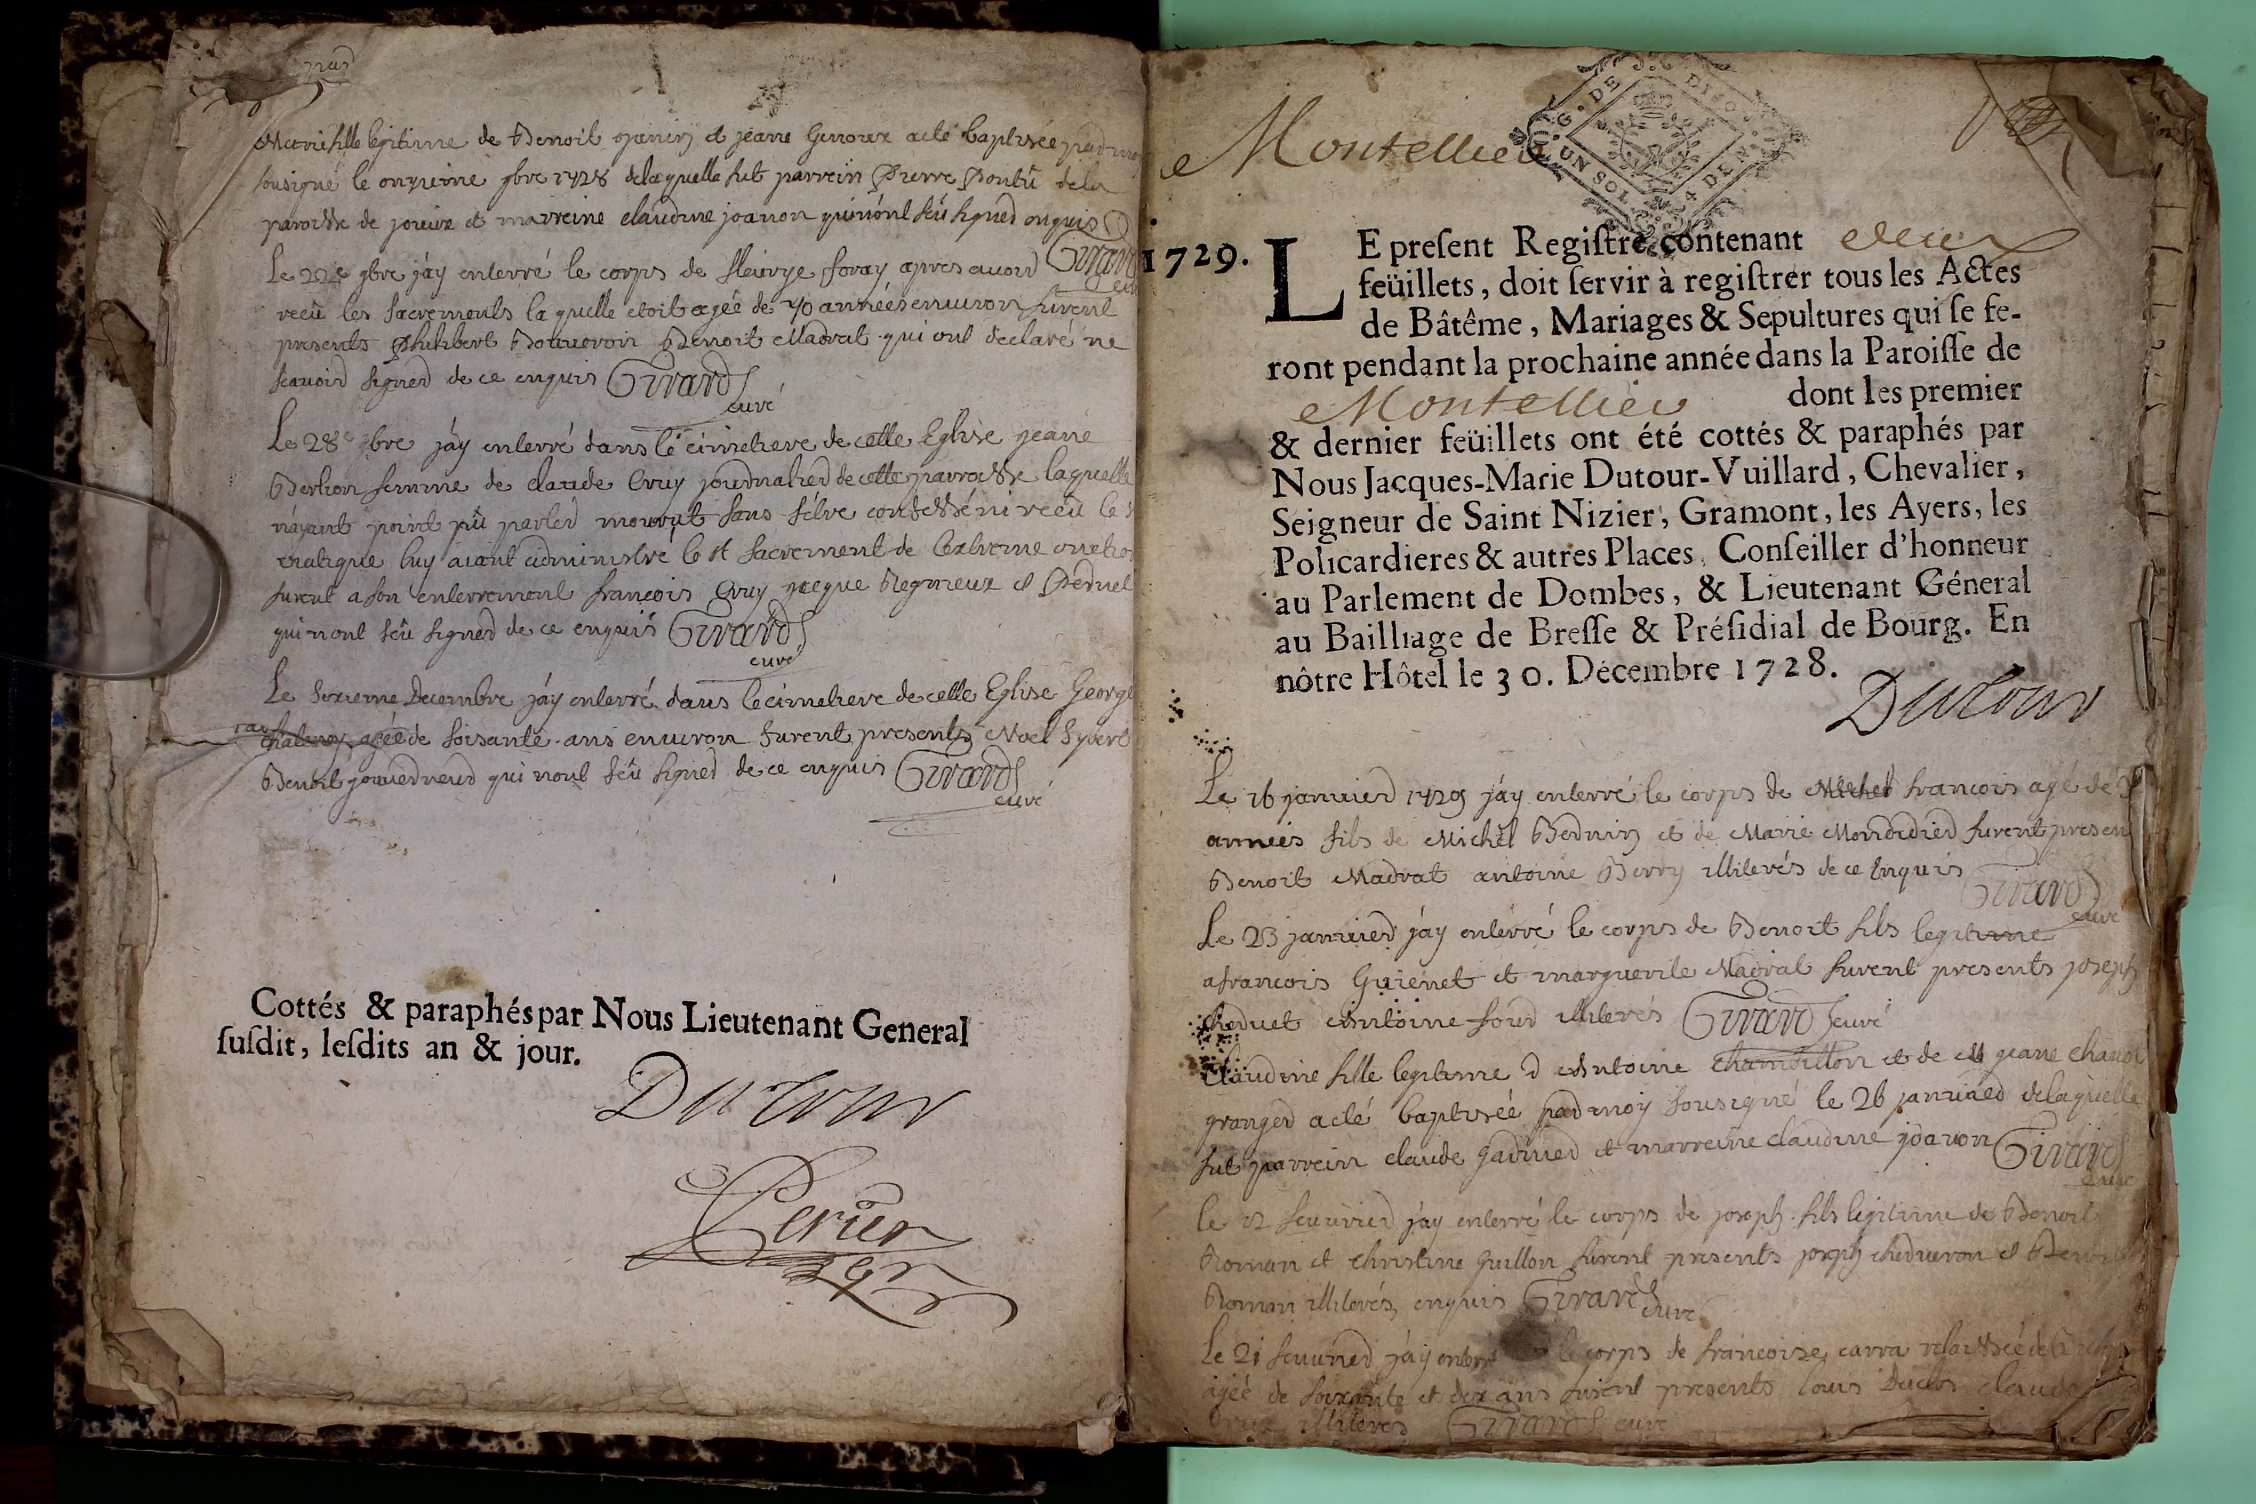 Marie fille legitime de Benoit et jeane Genoux a eté baptisée par moy
sousigné le onzieme 9bre 1728 de laquelle fut parrein Pierre de la
paroisse de et marreine claudine joanon qui n'ont sçû signer enquis
Girard
curé
Le 22e 9bre j'ay enterré le corps de fleurye foray apres avoir
reçû les sacrements la quelle etoit agée de 70 années environ furent
presents philibert Benoit Madrat qui ont declaré ne
scavoir signer de ce enquis Girard
curé
Le 28e 9bre j'ay enterré dans le cimetiere de cette Eglise jeane
Berlion femme de claude Cruy journalier de cette parroisse laquelle
n'ayant point pû parler mourut sans s'être confessé ni reçû le
viatique luy aiant administré le st sacrement de l'extreme onctio
furent a son enterrement françois Cruy jacque et
qui n'ont sçû signer de ce enquis Girard
curé
Le sixieme Decembre j'ay enterré dans le cimetiere de cette Eglise George
agée de soisante ans environ furent presents Noel
Benoit qui n'ont sçû signer de ce enquis Girard
curé
Cottés & paraphés par Nous Lieutenant General
suſdit, leſdits an & jour.
Dutour
Perier
G. DE DIJON
UN SOL 4 DEN.
Montellier
1729.
LE preſent Regiſtre contenant deux
feüillets, doit ſervir à regiſtrer tous les Actes
de Bâtême, Mariages & Sepultures qui ſe fe-
ront pendant la prochaine année dans la Paroiſſe de
Montellier dont les premier
& dernier feüillets ont été cottés & paraphés par
Nous Jacques-Marie Dutour-Vuillard, Chevalier,
Seigneur de Saint Nizier, Gramont, les Ayers, les
Policardieres & autres Places, Conſeiller d'honneur
au Parlement de Dombes, & Lieutenant Géneral
au Bailliage de Breſſe & Préſidial de Bourg. En
nôtre Hôtel le 30. Décembre 1728.
Dutour
Le 16 janvier 1729 j'ay enterré le corps de Michel francois agé de
années fils de Michel Bernin et de Marie Mondidier furent presen
Benoit Madrat antoine Berry illiterés de ce enquis
Girard
curé
Le 23 janvier j'ay enterré le corps de Benoit fils legitime
a francois Guienet et marguerite Madrat furent presents joseph
cheduet Antoine four illiterés Girard curé
Claudine fille legitime d Antoine chamdillon et de jeane
granger a eté baptisée par moy sousigné le 26 janvier de laquelle
fut parrein claude garnier et marreine claudine joanon Girard
curé
le 12 feuvrier j'ay enterré le corps de joseph fils legitime de Benoit
Roman et christine guillon furent presents joseph et Benoit
Roman illiterés enquis Girard
curé
Le 21 feuvrier j'ay enterré le corps de francoise carra relaissée de
agée de soixante et dix ans furent presents louis Duclos claude
illiterés Girard curé